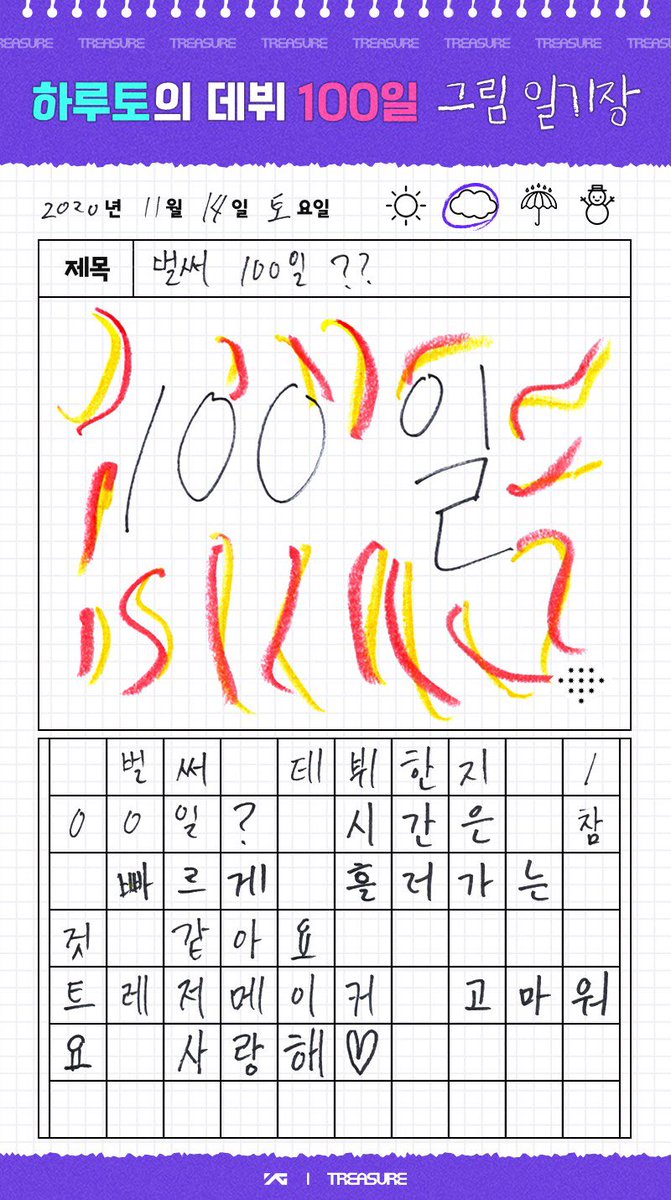 REASURE TREASURE TREASURE TREASURE TREASURE TREASURE TREASURE TREASU
하루토의 데뷔 100일 그림 일기장
2020년 11월 14일 토요일
제목 벌써 100일 ??
100일
벌써 테뷔한지 1
00일? 시간은 참
빠르게 흘러가는
것 같아요
트레저메이커 고마워
요 사랑해♡
YG | TREASURE